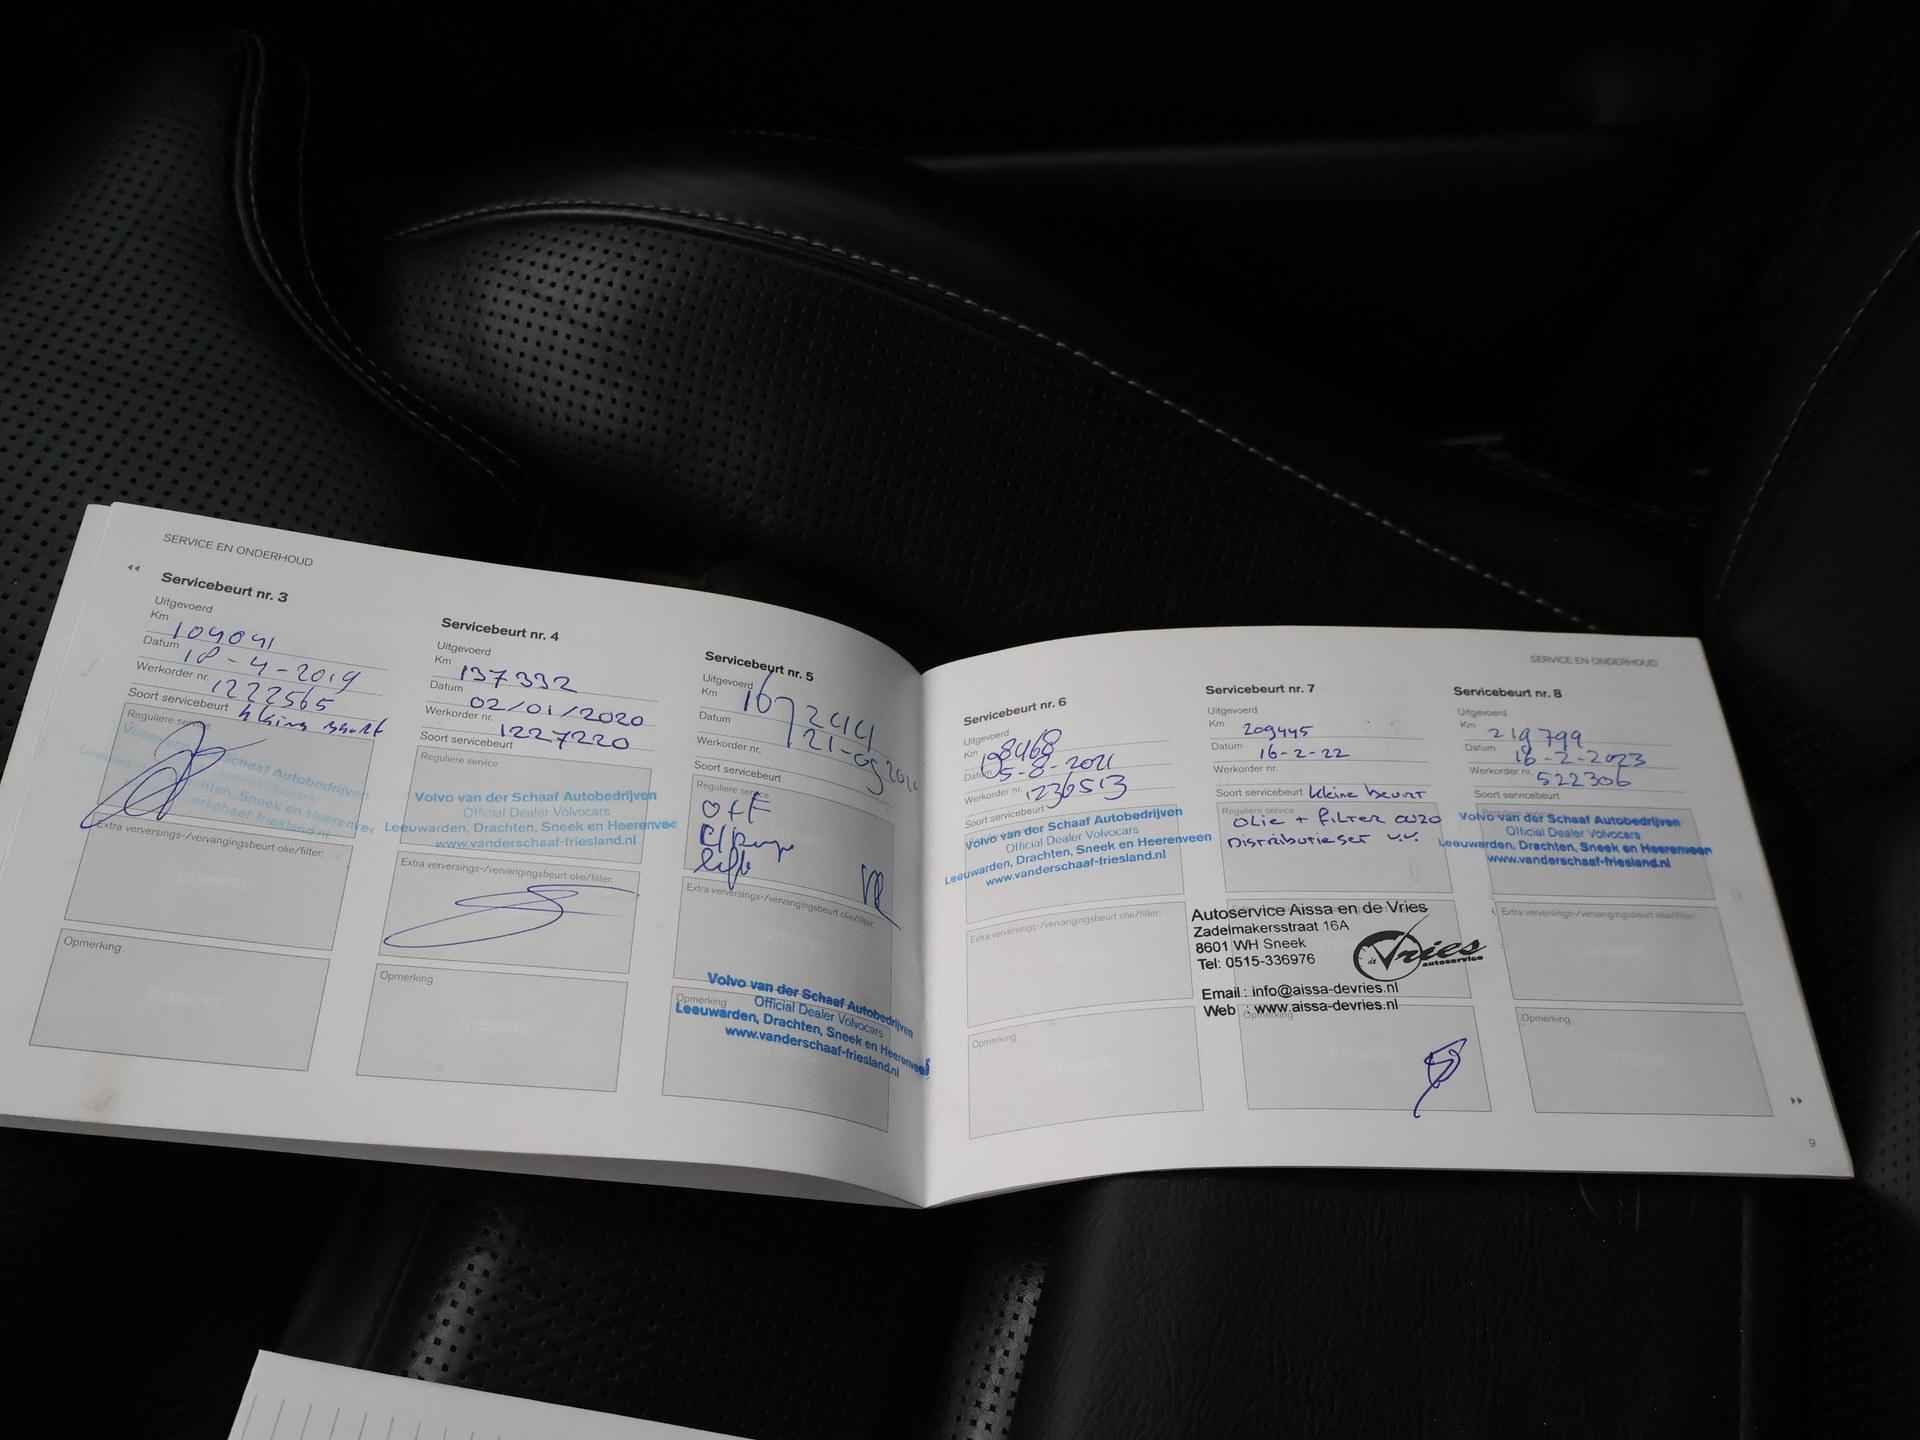 SERVICE EN ONDERHOUD
Servicebeurt nr. 3
Uitgevoerd
Km 104041
Datum 18-4-2019
Werkorder nr. 1222565
Soort servicebeurt
Reguliere service
Extra verversings-/vervangingsbeurt olie/filter:
Opmerking
Servicebeurt nr. 4
Uitgevoerd
Km 137332
Datum 02/01/2020
Werkorder nr. 1227220
Soort servicebeurt
Reguliere service
Volvo van der Schaaf Autobedrijven
Official Dealer Volvocars
Leeuwarden, Drachten, Sneek en Heerenveen
www.vanderschaaf-friesland.nl
Extra verversings-/vervangingsbeurt olie/filter:
Opmerking
Servicebeurt nr. 5
Uitgevoerd
Km 167244
Datum
Werkorder nr.
Soort servicebeurt
Reguliere service
Extra verversings-/vervangingsbeurt olie/filter:
Opmerking
Volvo van der Schaaf Autobedrijven
Official Dealer Volvocars
Leeuwarden, Drachten, Sneek en Heerenveen
www.vanderschaaf-friesland.nl
SERVICE EN ONDERHOUD
Servicebeurt nr. 6
Uitgevoerd
Km
Datum 5-8-2021
Werkorder nr. 1236513
Soort servicebeurt
Volvo van der Schaaf Autobedrijven
Official Dealer Volvocars
Leeuwarden, Drachten, Sneek en Heerenveen
www.vanderschaaf-friesland.nl
Extra verversings-/vervangingsbeurt olie/filter:
Opmerking
Servicebeurt nr. 7
Uitgevoerd
Km 209445
Datum 16-2-22
Werkorder nr.
Soort servicebeurt kleine beurt
Reguliere service
olie + filter 0W20
Distributieset v.v.
Autoservice Aissa en de Vries
Zadelmakersstraat 16A
8601 WH Sneek
Tel: 0515-336976
de Vries
autoservice
Email : info@aissa-devries.nl
Web : www.aissa-devries.nl
Opmerking
Servicebeurt nr. 8
Uitgevoerd
Km 219799
Datum 16-2-2023
Werkorder nr. 522306
Soort servicebeurt
Volvo van der Schaaf Autobedrijven
Official Dealer Volvocars
Leeuwarden, Drachten, Sneek en Heerenveen
www.vanderschaaf-friesland.nl
Extra verversings-/vervangingsbeurt olie/filter:
Opmerking
9